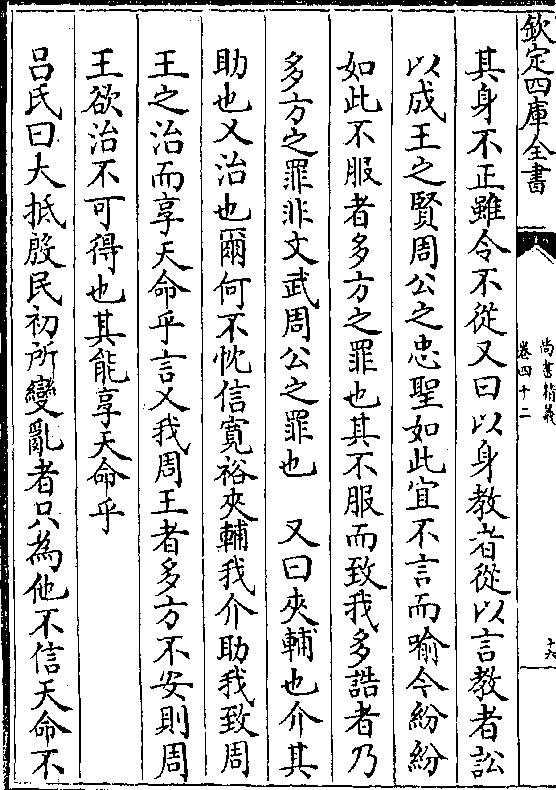 欽定四庫全書
尚書精義
卷四十二
十六
其身不正雖令不從又曰以身教者從以言教者訟
以成王之賢周公之忠聖如此宜不言而喻今紛紛
如此不服者多方之罪也其不服而致我多誥者乃
多方之罪非文武周公之罪也 又曰夾輔也介其
助也乂治也爾何不忱信寬裕夾輔我介助我致周
王之治而享天命乎言乂我周王者多方不安則周
王欲治不可得也其能享天命乎
呂氏曰大抵殷民初所變亂者只為他不信天命不